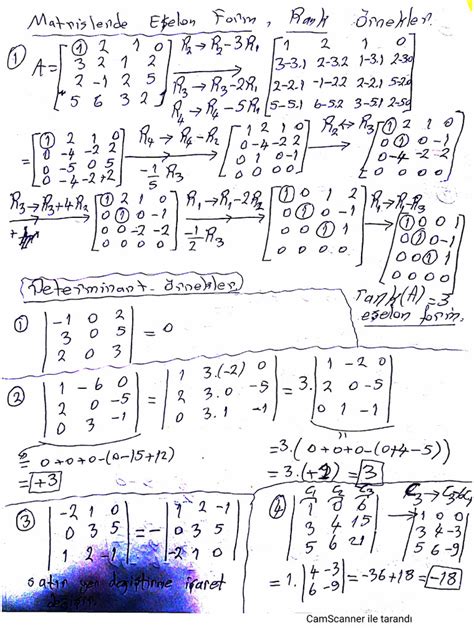 Matrislerde Eşelon Form, Rank Örnekler.
① A = [① 2 1 0; 3 2 1 2; 2 -1 2 5; 5 6 3 2] R₂→R₂-3R₁ R₃→R₃-2R₁ R₄→R₄-5R₁ [1 2 1 0; 3-3.1 2-3.2 1-3.1 2-3.0; 2-2.1 -1-2.2 2-2.1 5-2.0; 5-5.1 6-5.2 3-5.1 2-5.0]
= [① 2 1 0; 0 -4 -2 2; 0 -5 0 5; 0 -4 -2 +2] R₄→R₄-R₂ -1/5 R₃ [1 2 1 0; 0 -4 -2 2; 0 1 0 -1; 0 0 0 0] R₂↔R₃ [① 2 1 0; 0 ① 0 -1; 0 -4 -2 2; 0 0 0 0]
R₃→R₃+4R₂ [① 2 1 0; 0 ① 0 -1; 0 0 -2 -2; 0 0 0 0] R₁→R₁-2R₂ -1/2 R₃ [① 0 1 2; 0 ① 0 -1; 0 0 ① 1; 0 0 0 0] R₁→R₁-R₃ [① 0 0 1; 0 ① 0 -1; 0 0 ① 1; 0 0 0 0]
rank(A)=3
eşelon form.
Determinant Örnekler
① |-1 0 2; 3 0 5; 2 0 3| = 0
② |1 -6 0; 2 0 -5; 0 3 -1| = |1 3.(-2) 0; 2 3.0 -5; 0 3.1 -1| = 3.|1 -2 0; 2 0 -5; 0 1 -1|
= 0+0+0-(0-15+12)
= +3
= 3.(0+0+0-(0+4-5))
= 3.(+1) = 3
③ |-2 1 0; 0 3 5; 1 2 -1| = -|1 2 -1; 0 3 5; -2 1 0|
satır yer değiştirme işaret
④ C₁ C₂ C₃ |1 0 6; 3 4 15; 5 6 21| C₃→C₃-6C₁ |1 0 0; 3 4 -3; 5 6 -9|
= 1.|4 -3; 6 -9| = -36+18 = -18
CamScanner ile tarandı